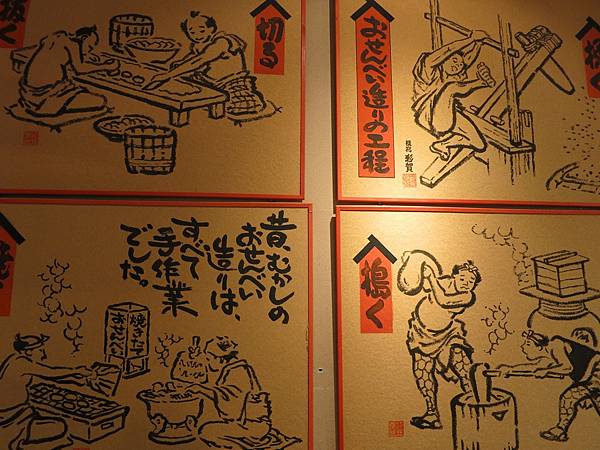 おせんべい造りの工程
椎名 彩賀
搗く
切る
抜く
搗く
昔、むかしの
おせんべい
造りは、
すべて
手作業
でした。
焼きたて
おせんべい
焼く